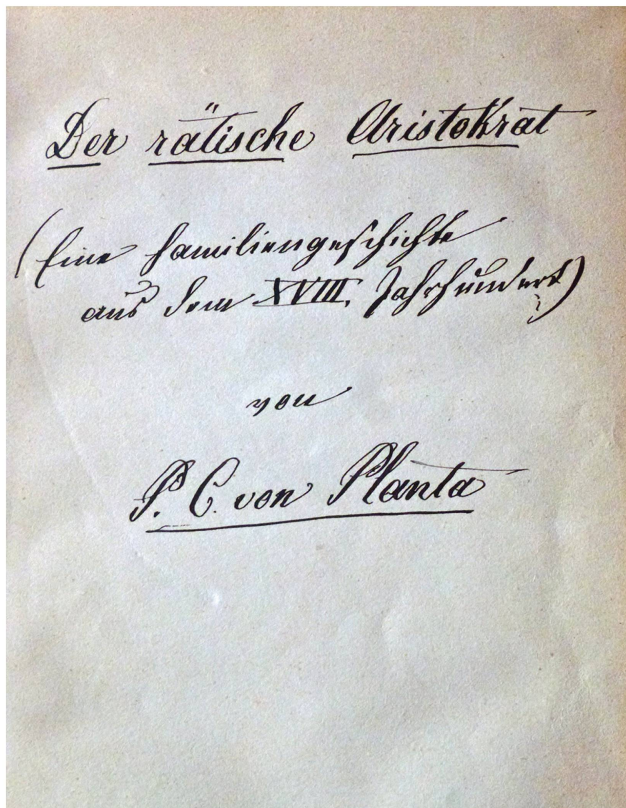 Der rätische Aristokrat
(Eine Familiengeschichte
aus dem XVIII. Jahrhundert)
von
P. C. von Planta